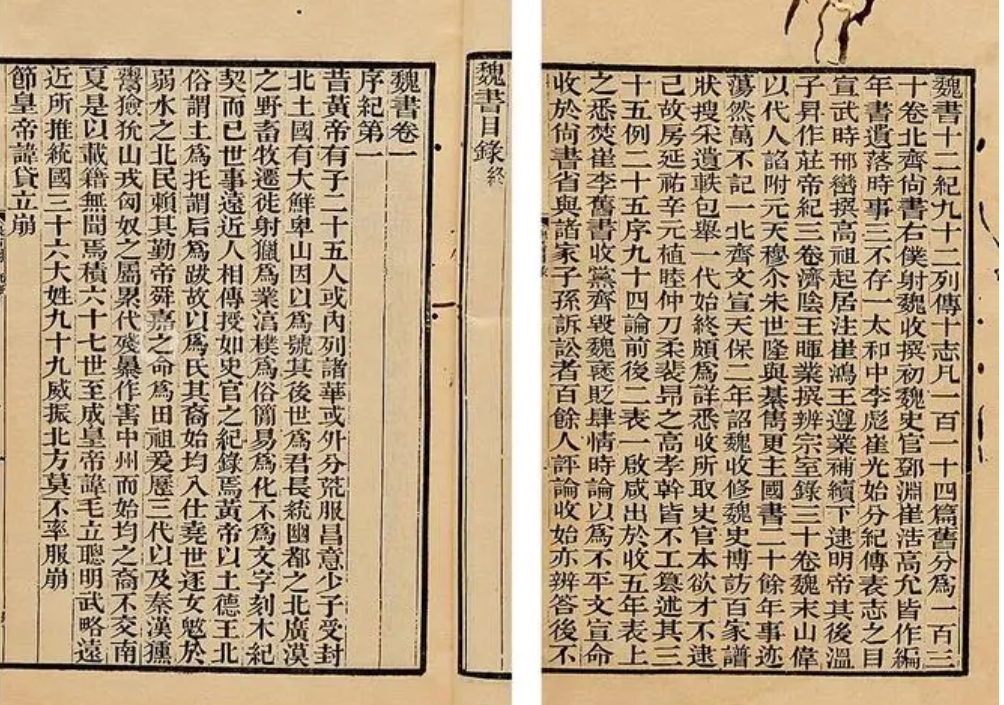 魏書十二紀九十二列傳十志凡一百一十四篇舊分爲一百三
十卷北齊尚書右僕射魏收撰初魏史官鄧淵崔浩高允皆作編
年書遺落時事三不存一太和中李彪崔光始分紀傳表志之目
宣武時邢巒撰高祖起居注崔鴻王遵業補續下逮明帝其後溫
子昇作莊帝紀三卷濟陰王暉業撰辨宗至錄三十卷魏末山偉
以代人諂附元天穆尒朱世隆與綦雋更主國書二十餘年事迹
蕩然萬不記一北齊文宣天保二年詔魏收修魏史博訪百家譜
狀搜采遺軼包舉一代始終頗爲詳悉收所取史官本欲才不逮
己故房延祐辛元植睦仲刀柔裴昂之高孝幹皆不工纂述其三
十五例二十五序九十四論前後二表一啟咸出於收五年表上
之悉焚崔李舊書收黨齊毀魏襃貶肆情時論以爲不平文宣命
收於尚書省與諸家子孫訴訟者百餘人評論收始亦辨答後不
魏書目錄終
魏書卷一
序紀第一
昔黃帝有子二十五人或內列諸華或外分荒服昌意少子受封
北土國有大鮮卑山因以爲號其後世爲君長統幽都之北廣漠
之野畜牧遷徙射獵爲業淳樸爲俗簡易爲化不爲文字刻木紀
契而已世事遠近人相傳授如史官之紀錄焉黃帝以土德王北
俗謂土爲托謂后爲跋故以爲氏其裔始均入仕堯世逐女魃於
弱水之北民賴其勤帝舜嘉之命爲田祖爰歷三代以及秦漢獯
鬻獫狁山戎匈奴之屬累代殘暴作害中州而始均之裔不交南
夏是以載籍無聞焉積六十七世至成皇帝諱毛立聰明武略遠
近所推統國三十六大姓九十九威振北方莫不率服崩
節皇帝諱貸立崩